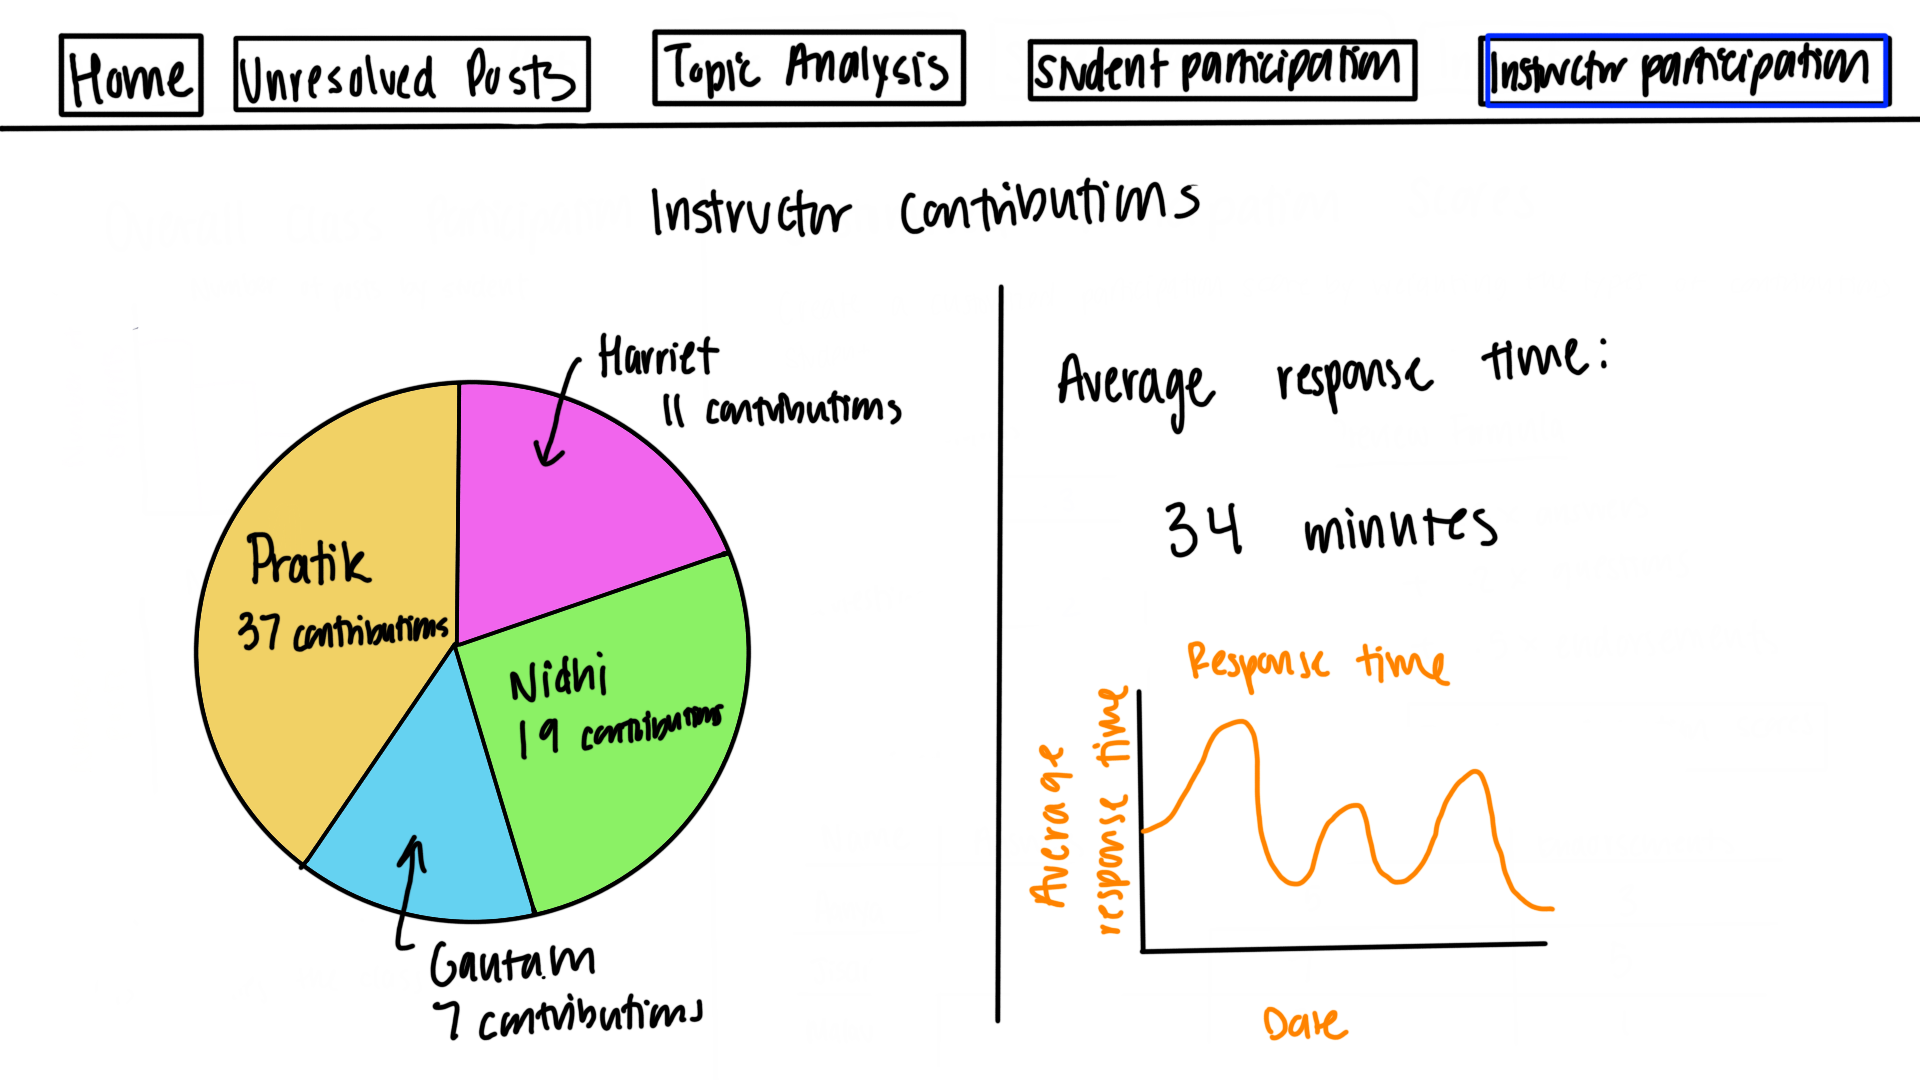 Home
Unresolved Posts
Topic Analysis
Student participation
Instructor participation
Instructor Contributions
Harriet
11 contributions
Pratik
37 contributions
Nidhi
19 contributions
Gautam
7 contributions
Average response time:
34 minutes
Response time
Average
response time
Date